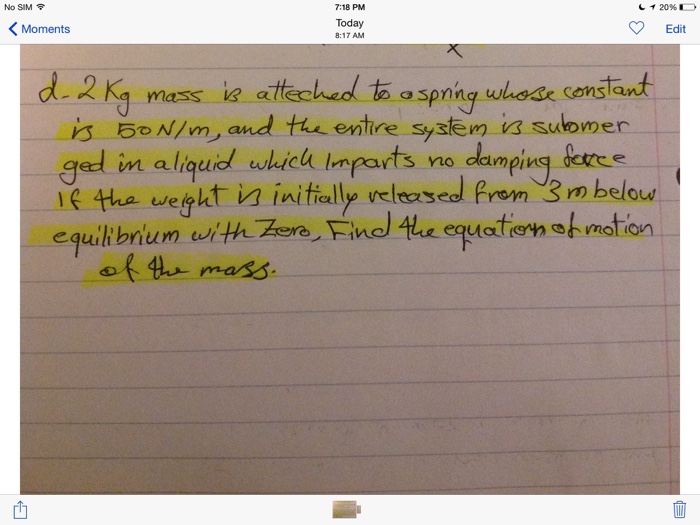 No SIM
7:18 PM
20%
Moments
Today
8:17 AM
Edit
x
d- 2 Kg mass is atteched to a spring whose constant
is 50 N/m, and the entire system is submer
ged in a liquid which Imparts no damping force
If the weight is initially released from 3 m below
equilibrium with Zero, Find the equation of motion
of the mass.